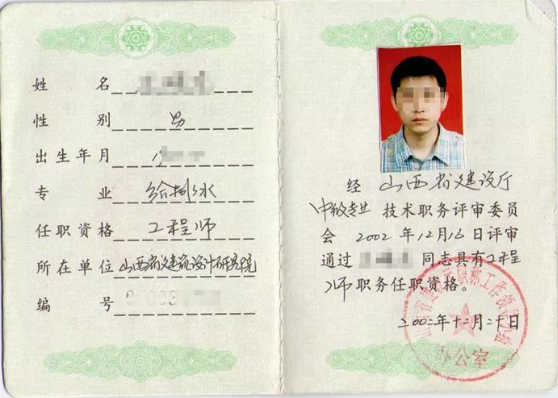 姓 名
性 别 男
出生年月
专 业 给排水
任职资格 工程师
所在单位 山西省建筑设计研究院
编 号
经 山西省建设厅
中级专业 技术职务评审委员
会 2002 年 12 月 16 日评审
通过 同志具有工程
师 职务任职资格。
二00二年十二月二十日
办公室